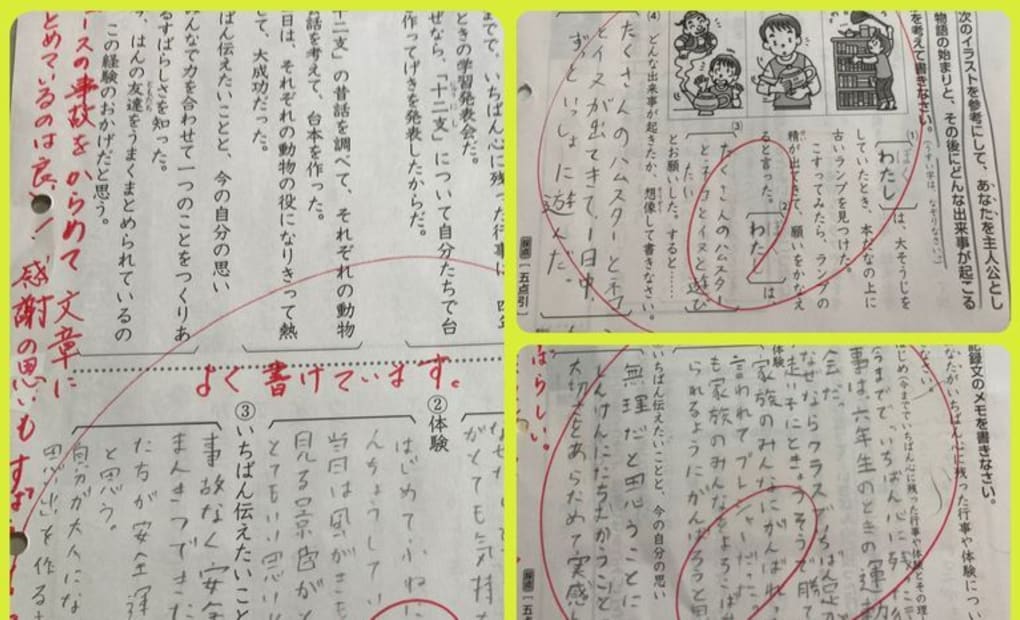 までで、いちばん心に残った行事は、四年
ときの学習発表会だ。
ぜなら、「十二支」について自分たちで台
作ってげきを発表したからだ。
十二支」の昔話を調べて、それぞれの動物
会話を考えて、台本を作った。
日は、それぞれの動物の役になりきって熱
して、大成功だった。
ばん伝えたいことと、今の自分の思い
んなで力を合わせて一つのことをつくりあ
るすばらしさを知った。
、はんの友達をうまくまとめられているの
この経験のおかげだと思う。
ースの事故をからめて文章に
とめているのは良い！感謝の思いもすば
よく書けています。
がとても気持
②体験
はじめて小ね
んちょうしてい
当日は風がさも
見る景色がと
とてもいい思い
③いちばん伝えたいこと
事故なく安全
まんきつできた
たちが安全運
と思う。
自分が大人にな
思い」を作る
次のイラストを参考にして、あなたを主人公とし
物語の始まりと、その後にどんな出来事が起こる
を考えて書きなさい。
(うすい字は、なぞりなさい。)
(1)
わたし
は、大そうじを
していたとき、本だなの上に
古いランプを見つけた。
こすってみたら、ランプの
精が出てきて、願いをかなえ
ると言った。
(2)
わたし
は
(3)
たくさんのハムスター
と子イヌと遊び
たい
とお願いした。すると……
(4)
どんな出来事が起きたか、想像して書きなさい。
たくさんのハムスターと子
とイスが出てきて、1日中、
ずっといっしょに遊んだ。
採点
五点引
記録文のメモを書きなさい。
なたがいちばん心に残った行事や体験につい
なさい。
はじめ(今までていちばん心に残った行事や体験とその理
今までで、いちばん心に残
事は六年生のときの運動
会だ。
なぜならクラスでいちばん足が
走い子にときょうそうで勝て
体験
家族のみんなにがんばれ
言われてプレッシャーだった
も家族のみんなをよろこば
られるようにがんばろうと思
いちばん伝えたいことと、今の自分の思い
無理だと思うことに
しんけんにたちむかうこと
大切さをあらためて実感
ばらしい。
採点
五点